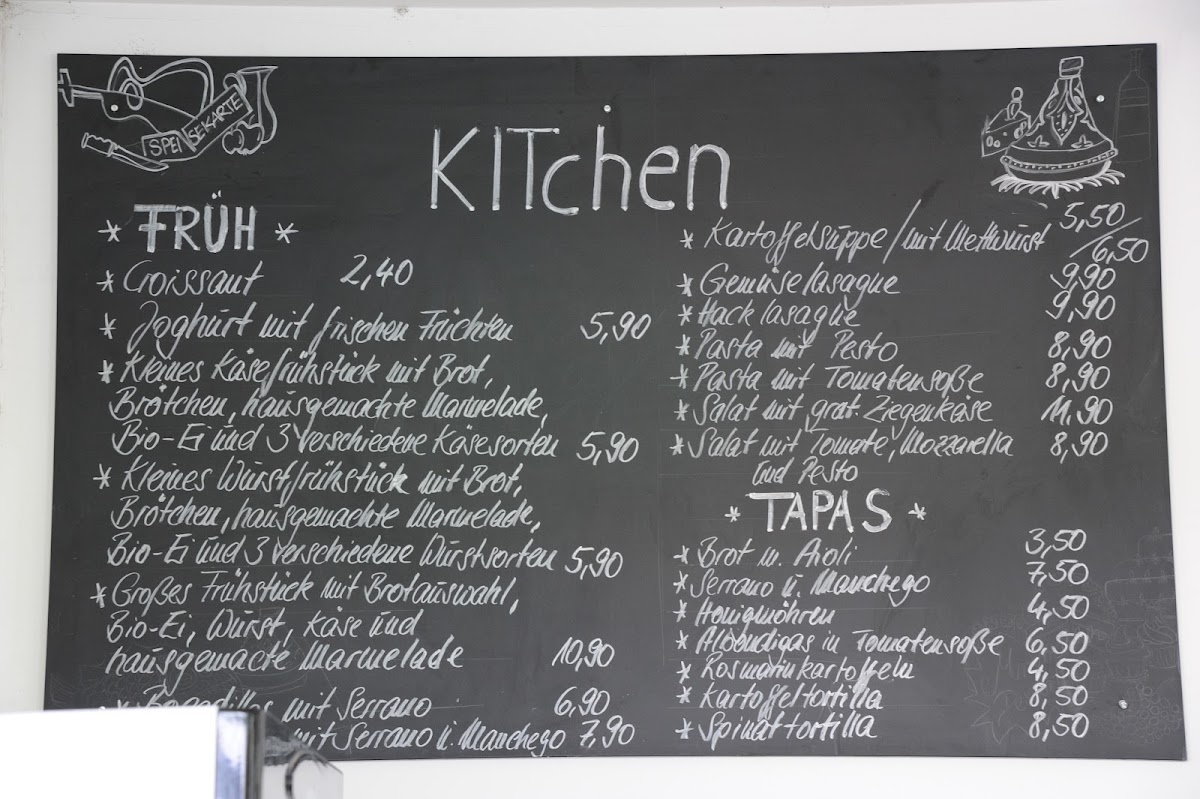 SPEISEKARTE
KITchen
* FRÜH *
* Croissant 2,40
* Joghurt mit frischen Früchten 5,90
* Kleines Käsefrühstück mit Brot,
Brötchen, hausgemachte Marmelade,
Bio-Ei und 3 verschiedene Käsesorten 5,90
* Kleines Wurstfrühstück mit Brot,
Brötchen, hausgemachte Marmelade,
Bio-Ei und 3 verschiedene Wurstsorten 5,90
* Großes Frühstück mit Brotauswahl,
Bio-Ei, Wurst, Käse und
hausgemacte Marmelade 10,90
mit Serrano 6,90
mit Serrano u. Manchego 7,90
* Kartoffelsuppe/mit Mettwurst 5,50/6,50
* Gemüselasagne 9,90
* Hacklasagne 9,90
* Pasta mit Pesto 8,90
* Pasta mit Tomatensoße 8,90
* Salat mit grat. Ziegenkäse 11,90
* Salat mit Tomate, Mozzarella 8,90
und Pesto
* TAPAS *
* Brot m. Aioli 3,50
* Serrano u. Manchego 7,50
* Honigmöhren 4,50
* Albondigas in Tomatensoße 6,50
* Rosmarinkartoffeln 4,50
* Kartoffeltortilla 8,50
* Spinattortilla 8,50